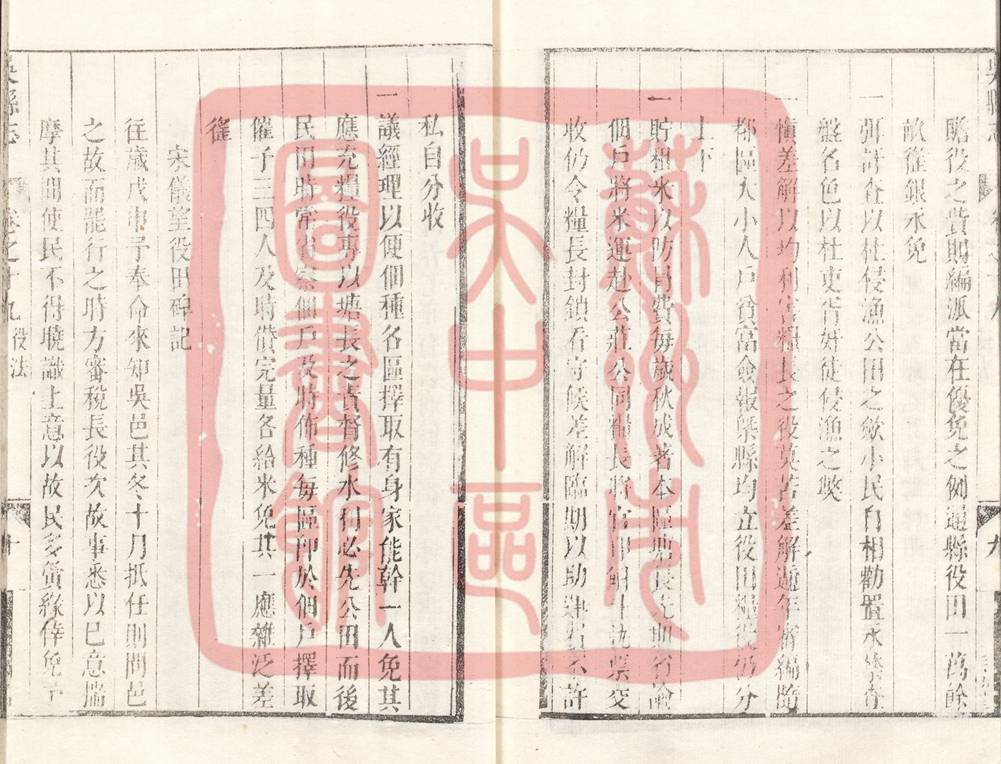 贍役之費則編派當在優免之例通縣役田一萬餘
畝徭銀永免
一弭計査以杜侵漁公田之歛小民自相勸置永
盤名色以杜吏胥奸徒侵漁之獘
一愼差解以均利害糧長之役莫苦差解遞年審編隨
都區大小人戸貧富僉報槩縣均立役田糧役仍分
上下
一貯租米以防冐費每歲秋成著本區塘長先期省諭
佃戸將米運赴公莊公同糧長將官田
收仍令糧長封鎖看守候差解臨期以助不許
私自分收
一議經理以便佃種各區擇取有身家能幹一人免其
應充糧役專以塘長之責督修水利必先公田而後
民田時常省察佃戸及時佈種每區卽於佃戸擇取
催子三四人及時償完量各給米免其一應雜泛差
徭
宋儀望役田碑記
往歲戊申予奉命來知吳邑其冬十月抵任則問邑
之故而罷行之時方審稅長役次故事悉以巳意揣
摩其間使民不得曉識上意以故民多夤緣倖免
吳縣志
卷之十九 役法
十
九
蘇州市
吳中區
圖書館